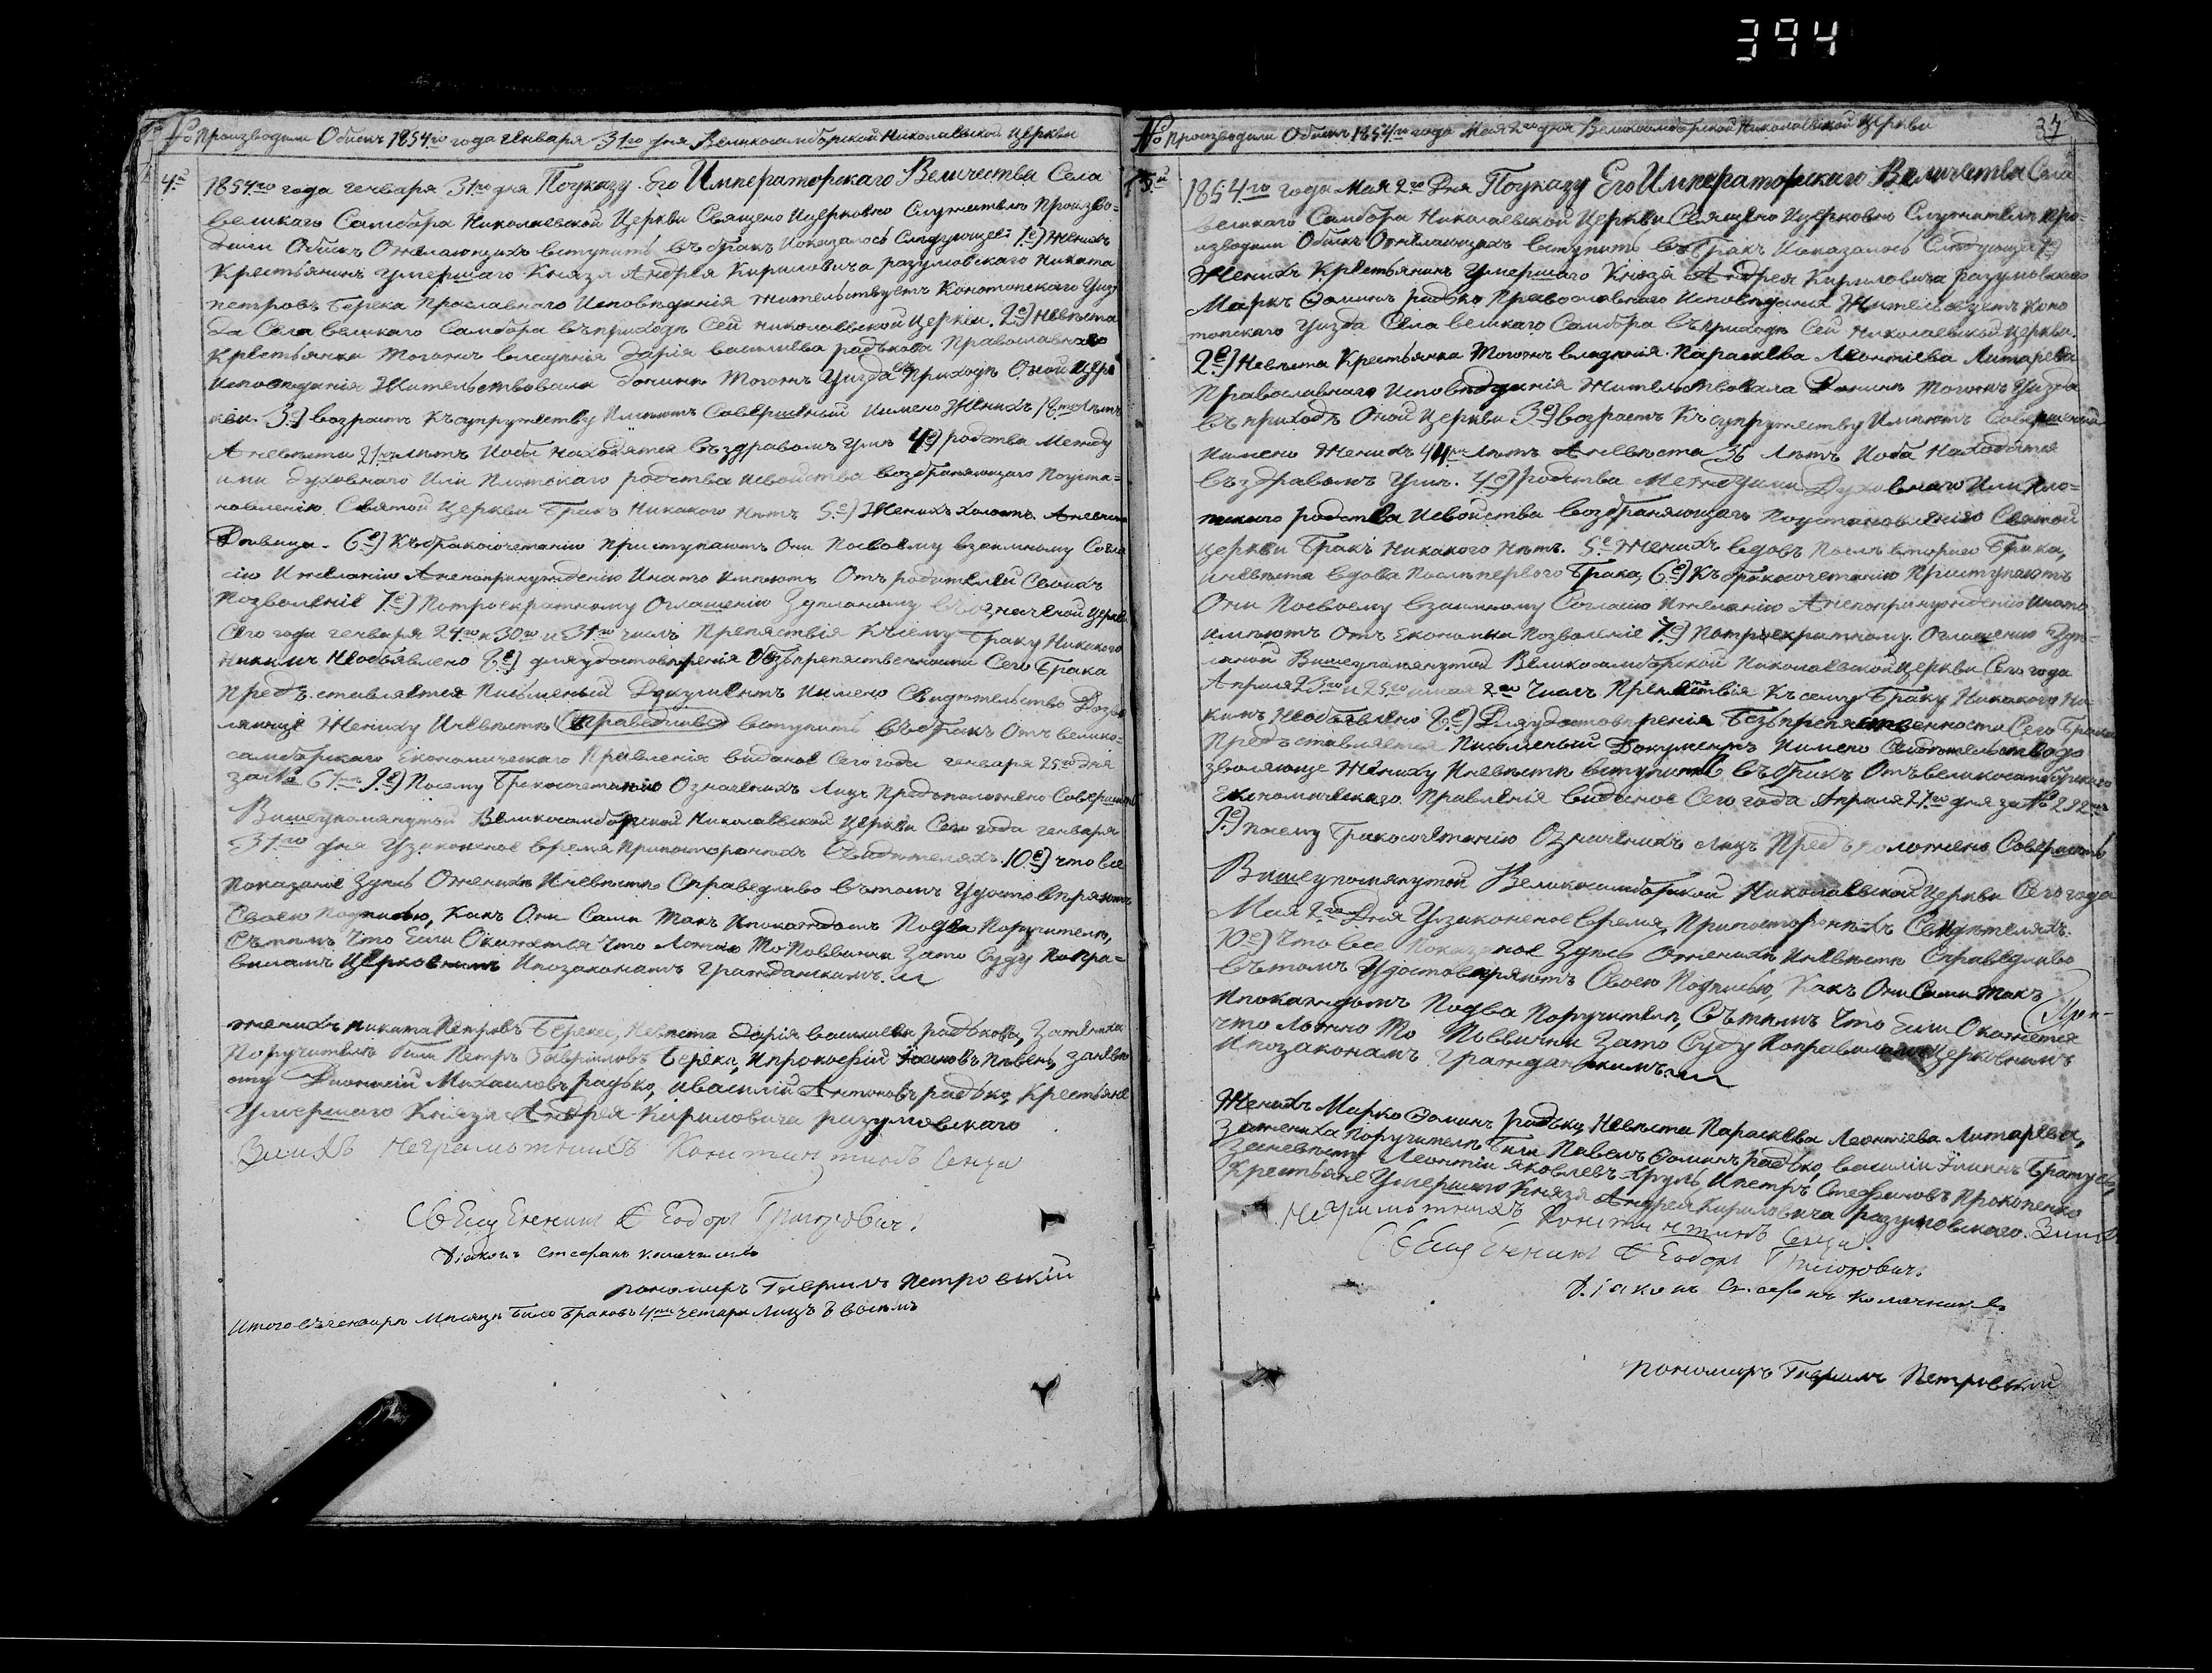 394
№ Производили Обыскъ 1854го года Генваря 31го дня Великосамборской Николаевской Церкви
4й
1854го года генваря 31го дня Поуказу Его Императорского Величества Села
великаго Самбора Николаевской Церкви Священо Ицерковно Служители Произво-
дили Обыскъ Ожелающихъ вступить въ бракъ Ипоказалось Следующее 1е) Женихъ
Крестьянинъ умершаго Князя Андрея Кириловича разумовскаго Никита
петровъ Берека Православного Исповеданія жительствуетъ Конотопскаго Уез
да Села великаго Самбора въприходе Сей николаевской церкви. 2е) Невеста
Крестьянка тогожъ владенія Дарія василиева радькова Православнаго
Исповеданія Жительствовала доныне тогожъ Уезда въ Приходе Оной Цер
кви. 3е) возрастъ Късупружеству Имеютъ Совершеный Имено Женихъ
А невеста 21го летъ Иоба находятся въздравомъ уме 4е) родства Между
ими Духовнаго Или Плотскаго родства Исвойства возбраняющаго Поуста-
новленію Святой Церкви Бракъ Никакого нетъ 5е) Женихъ Холостъ Аневеста
Девица. 6е) Къбракосочетанію приступаютъ Они Посвоему взаимному Согла
сію Ижеланію Анепопринужденію Инато Имеютъ Отъ родителей Своихъ
Позволеніе 7е) Потроекратному Оглашенію Зделаному въозначеной Церкве
Сего года генваря 24го и 30го и 31го числъ Препятствія Късему Браку Никакого
Никимъ Необъявлено 8е) Дляудостоверенія Безпрепятственности Сего Брака
Предъставляется Письменый Документъ Имено Свидетельство Дозво
ляюще Жениху Иневесте (праведливо) вступить въбракъ Отъ велико-
самборскаго Економического Правленія виданое Сего года генваря 25го дня
за№ 67мъ 9е) Посему Бракосочетанію Означеныхъ лицъ Предположено Совершить
Вышеупомянутой Великосамборской Николаевской Церкви Сего года генваря
31го дня Узаконеное время Припостороннихъ Свидетеляхъ. 10е) что все
Показаное Здесь Ожених Иневесте Справедливо вътомъ Удостоверяютъ
Своею Подписью, Какъ Они Сами Такъ Ипокаждомъ Подва Поручителя,
Сътемъ Что Если Окажется Что ложно То Повинни Зато Суду Попра-
виламъ Церковнимъ Ипозаконамъ гражданскимъ.
женихъ Никита Петровъ Берека, Невеста Дарія василиева радькова, Зажениха
Поручители были Петръ Гавриловъ Берека, Ипрокофій Певень, Заневе
сту Дионисій Михаиловъ радько, Ивасилій Антоновъ радько, Крестьяне
Умершаго Князя Андрея Кириловича разумовского
Вместо неграмотнихъ Константинъ Сенча
Священникъ Феодоръ Григорович.
Діаконъ Стефанъ Колачниковъ
пономарь Гавриилъ Петровскій
Итого въгенваре Месяце было браковъ 4ри четири Лицъ 8 восемь
№ Производили Обыскъ 1854го года Мая 2го дня Великосамборской Николаевской Церкви
37
5й
1854го года Мая 2го Дня Поуказу Его Императорскаго Величества Села
великаго Самбора Николаевской Церкви Священо Ицерковно Служители Про-
изводили Обыскъ Ожелающихъ вступить въ Бракъ Ипоказалось Следующее 1е)
Женихъ Крестьянинъ Умершаго Князя Андрея Кириловича разумовскаго
Марко Фоминъ радько Православнаго Исповеданія Жительствуетъ Коно
топскаго Уезда Села великаго Самбора въприходе Сей Николаевской Церкви.
2е) Невеста Крестьянка Тогожъ владенія Параскева Леонтіева Литарева
Православнаго Исповеданія Жительствовала Доныне Тогожъ Уезда
въ приходе Оной Церкви 3е) возрастъ Късупружеству Имеютъ Совершеный
Имено Женихъ 44ри летъ Аневеста 36 летъ Иоба Находятся
въздравомъ уме. 4е) родства Междуими Духовнаго Или Пло-
тскаго родства Исвойства возбраняющаго Поустановленію Святой
церкви Бракъ Никакого Нетъ. 5е Женихъ вдовъ После втораго Брака,
Иневеста вдова После первого Брака, 6е) Къбракосочетанію Приступаютъ
Они Посвоему взаимному Согласію Ижеланію Анепопринужденію Инато
имеютъ Отъ Економіи Позволеніе 7е) Потроекратному Оглашенію Зде-
ланой Вышеупомянутой Великосамборской Николаевской Церкви Сего года
Апреля 23го и 25го имая 2го Числъ Препятствія Късему Браку Никакого Ни
кимъ Необъявлено 8е) Дляудостоверенія Безпрепятственности Сего Брака
Предъставляется Письменый Документъ Имено Свидетельство до
зволяюще Жениху Иневесте вступить въбракъ Отъвеликосамборскаго
Економическаго Правленія виданое Сего года Апреля 27го дня за № 292мъ
9е) Посему Бракосочетанію Означеныхъ Лицъ Предположено Совершить
Вышеупомянутой Великосамборской Николаевской Церкви Сего года
Мая 2го Дня Узаконеное время, Припостороннихъ Свидетеляхъ.
10е) Что все Показаное Здесь Ожених Иневесте Справедливо
вътомъ Удостоверяютъ Своею Подписью, Какъ Они Сами Такъ
Ипокаждомъ Подва Поручителя, Сътемъ Что Если Окажется
что ложно То Повинни Зато Суду Поправиламъ Церковнимъ
Ипозаконамъ Гражданскимъ.
Женихъ Марко Фоминъ радько, Невеста Параскева Леонтіева Литарева,
Зажениха Поручители Были Павелъ Фоминъ радько, василій Братусь,
Заневесту Леонтій Яковлевъ Хруль, Ипетръ Стефановъ Прокопенко
Крестьяне Умершаго Князя Андрея Кириловича разумовского. Вместо
Неграмотнихъ Константинъ Сенча.
Священникъ Феодоръ Григорович.
Діаконъ Стефанъ Колачниковъ
пономарь Гавриилъ Петровский